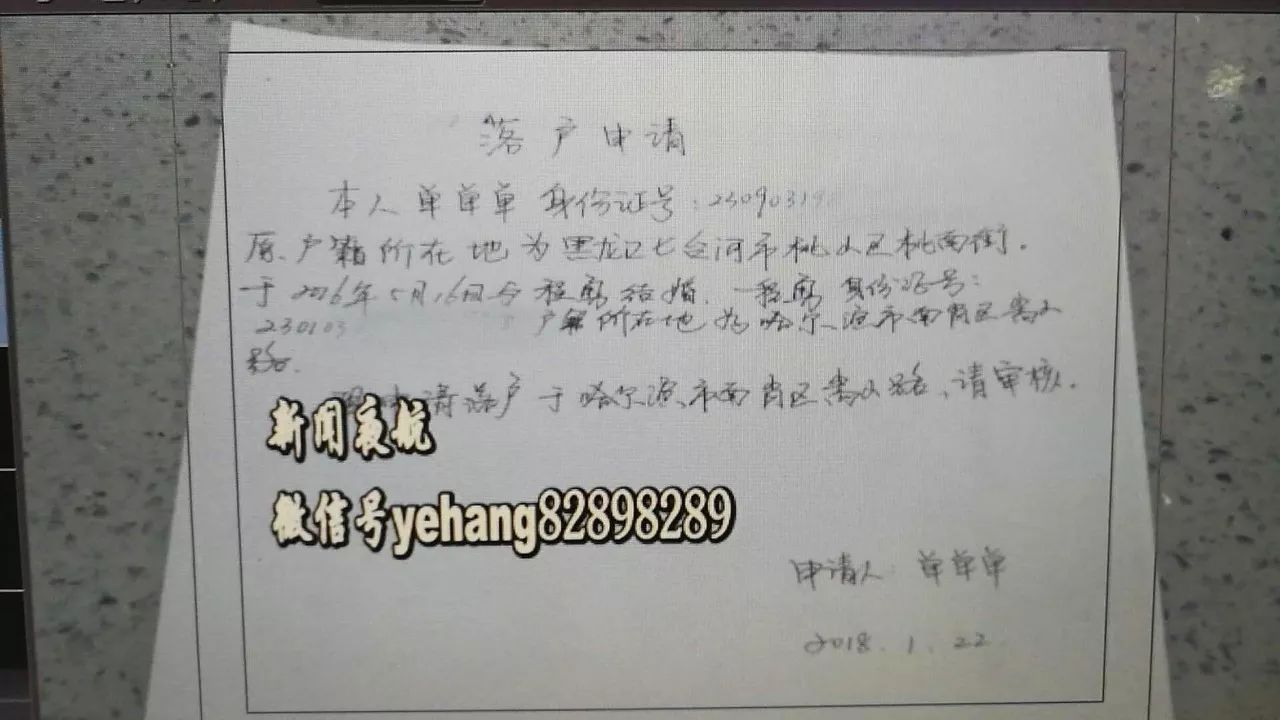 落户申请
本人单单单 身份证号:23090319
原户籍所在地为黑龙江七台河市桃山区桃南街.
于2016年5月16日与程勇结婚. 程勇 身份证号:
230103 户籍所在地为哈尔滨市南岗区嵩山
路.
现申请落户于哈尔滨市南岗区嵩山路,请审核.
新闻夜航
微信号yehang82898289
申请人 单单单
2018.1.22